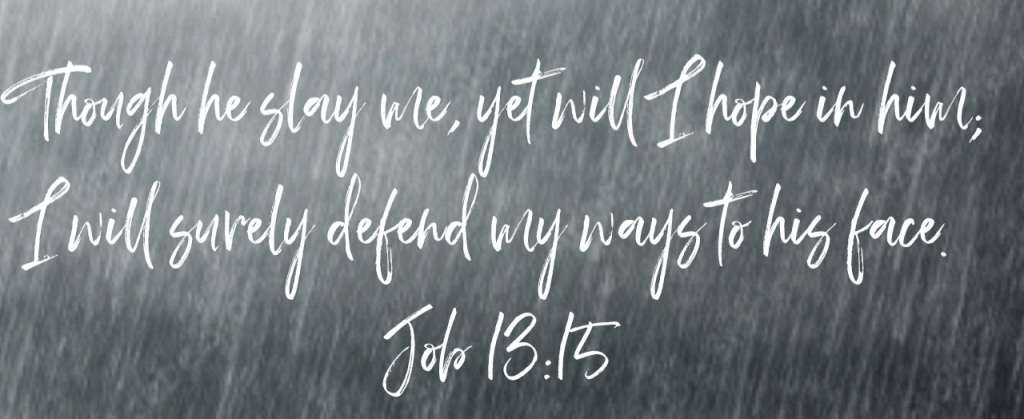 Though he slay me, yet will I hope in him;
I will surely defend my ways to his face.
Job 13:15